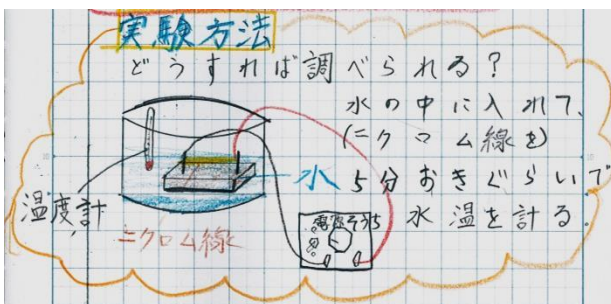 実験方法
どうすれば調べられる?
水の中に入れて、
(ニクロム線を)
水 5分おきぐらいで
水温を計る。
温度計
ニクロム線
電源そうち